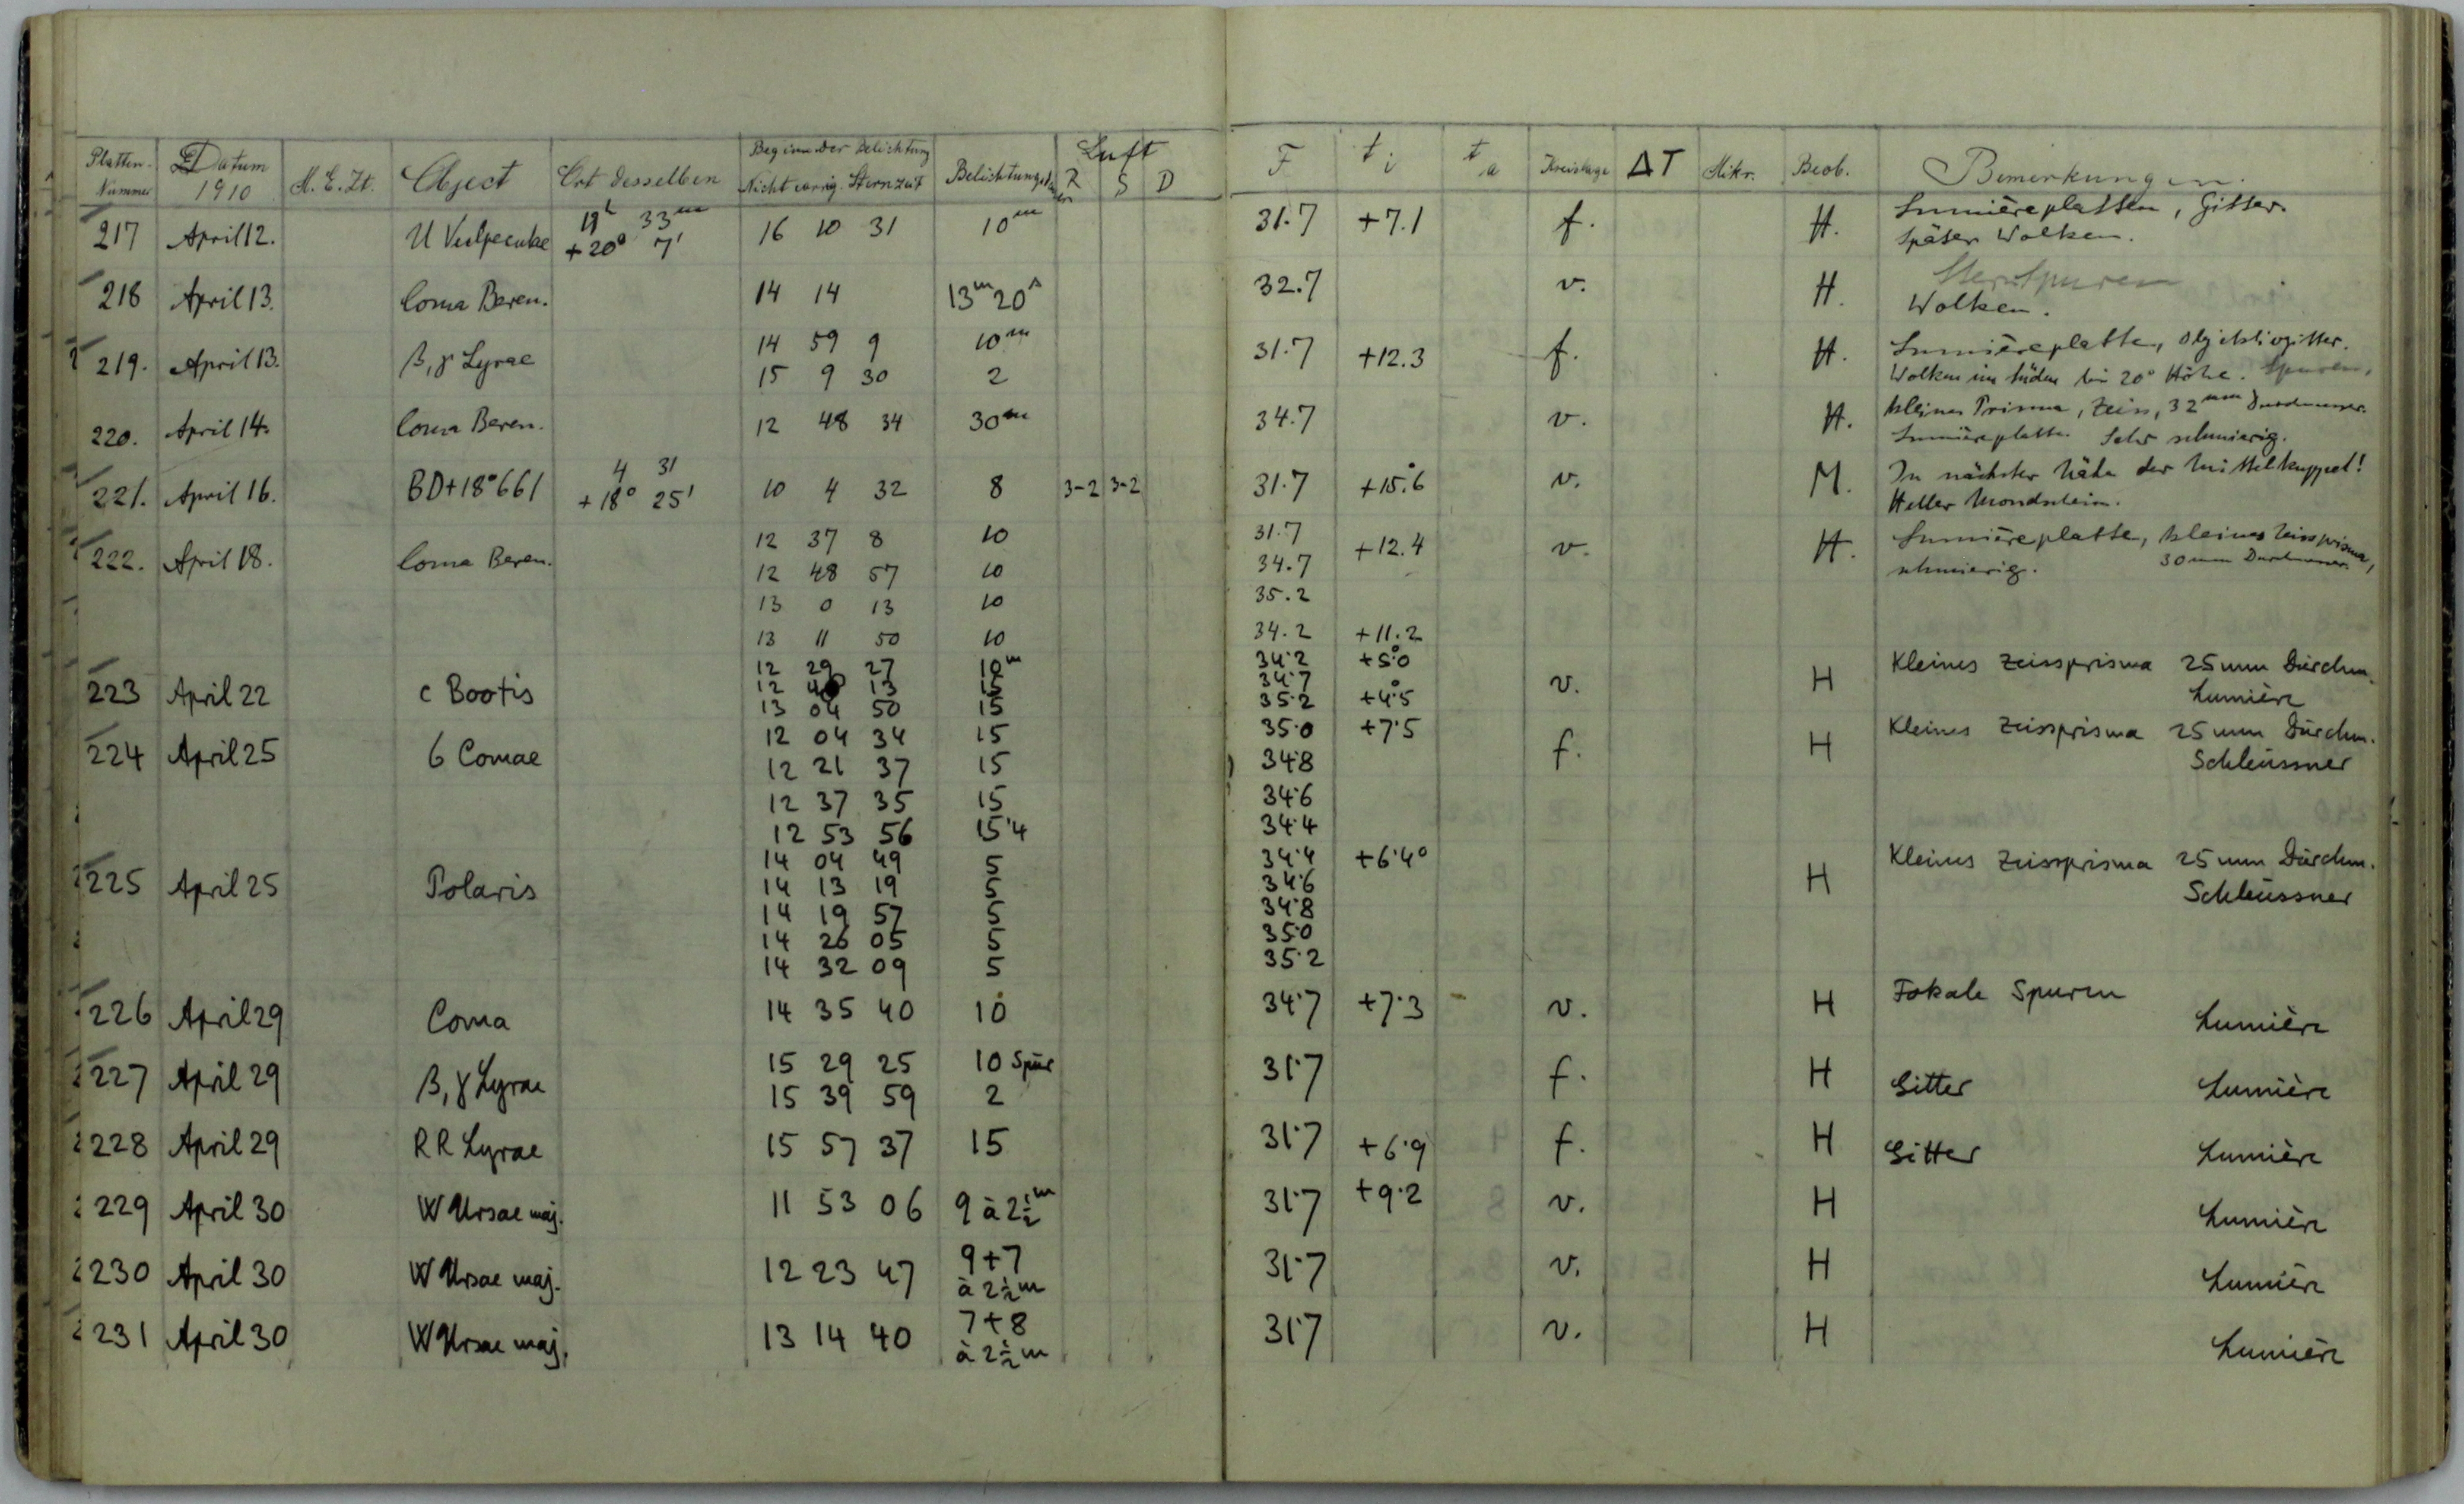 Platten-Nummer Datum 1910 M. E. Zt. Object Ort desselben Beginn der Belichtung Nicht corrig. Sternzeit Belichtungsdauer Luft R S D F t i t a Kreislage ΔT Mikr. Beob. Bemerkungen.
217 April 12. U Vulpeculae 19h 33m 16 10 31 10m 31.7 +7.1 f. H. Lumièreplatten, Gitter.
+20° 7' Später Wolken.
218 April 13. Coma Beren. 14 14 13m 20s 32.7 v. H. Sternspuren
Wolken.
219. April 13. β, γ Lyrae 14 59 9 10m 31.7 +12.3 f. H. Lumièreplatte, Objektivgitter.
15 9 30 2 Wolken im Süden bis 20° Höhe. Spuren.
220. April 14. Coma Beren. 12 48 34 30m 34.7 v. H. kleines Prisma, Zeiss, 32mm Durchmesser.
Lumièreplatte. Sehr schmierig.
221. April 16. BD+18°661 4 31 10 4 32 8 3-2 3-2 31.7 +15°.6 v. M. In nächster Nähe der Mittelkuppel!
+18° 25' Heller Mondschein.
222. April 18. Coma Beren. 12 37 8 10 31.7 +12.4 v. H. Lumièreplatte, kleines Zeissprisma,
12 48 57 10 34.7 schmierig. 30mm Durchmesser.
13 0 13 10 35.2
13 11 50 10 34.2 +11.2
223 April 22 c Bootis 12 29 27 10m 34.2 +5°.0 v. H Kleines Zeissprisma 25mm Durchm.
12 13 15 34.7
13 04 50 15 35.2 +4°.5 Lumière
224 April 25 6 Comae 12 04 34 15 35.0 +7.5 f. H Kleines Zeissprisma 25mm Durchm.
12 21 37 15 34.8 Schleussner
12 37 35 15 34.6
12 53 56 15.4 34.4
225 April 25 Polaris 14 04 49 5 34.4 +6.4° H Kleines Zeissprisma 25mm Durchm.
14 13 19 5 34.6 Schleussner
14 19 57 5 34.8
14 26 05 5 35.0
14 32 09 5 35.2
226 April 29 Coma 14 35 40 10 34.7 +7.3 v. H Fokale Spuren Lumière
227 April 29 β, γ Lyrae 15 29 25 10 Spur 31.7 f. H Gitter Lumière
15 39 59 2
228 April 29 RR Lyrae 15 57 37 15 31.7 +6.9 f. H Gitter Lumière
229 April 30 W Ursae maj. 11 53 06 9 à 2½m 31.7 +9.2 v. H Lumière
230 April 30 W Ursae maj. 12 23 47 9+7 31.7 v. H Lumière
à 2½m
231 April 30 W Ursae maj. 13 14 40 7+8 31.7 v. H Lumière
à 2½m